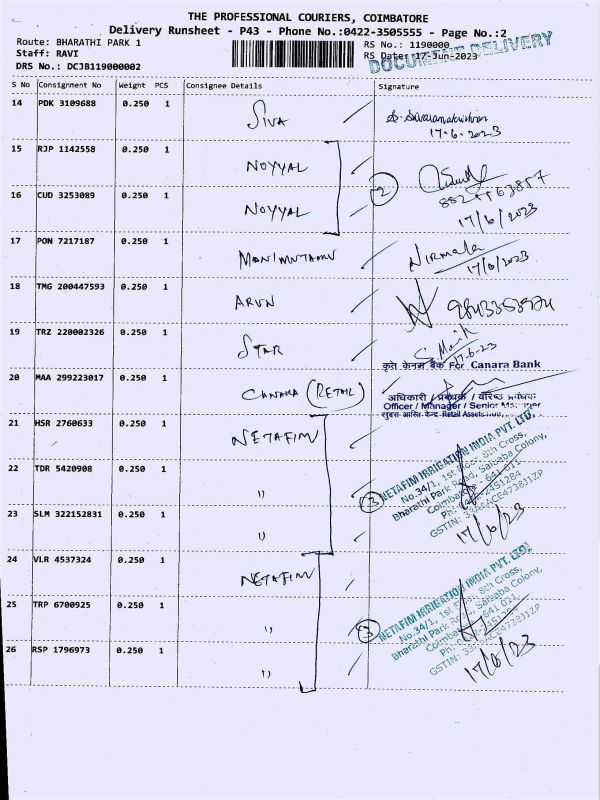 THE PROFESSIONAL COURIERS, COIMBATORE
Delivery Runsheet - P43 - Phone No.:0422-3505555 - Page No.:2
Route: BHARATHI PARK 1
RS No.: 1190000
Staff: RAVI
RS Date: 17-Jun-2023
DRS No.: DCJB119000002
DOCUMENT DELIVERY
S No Consignment No Weight PCS Consignee Details Signature
14 PDK 3109688 0.250 1 SIVA
17-6-2023
15 RJP 1142558 0.250 1 NOYYAL
2
16 CUD 3253089 0.250 1 NOYYAL
17/6/2023
17 PON 7217187 0.250 1 Nirmala
17/6/2023
18 TMG 200447593 0.250 1 ARUN
19 TRZ 220002326 0.250 1 STAR
17-6-23
कृते केनरा बैंक For Canara Bank
20 MAA 299223017 0.250 1 CANARA (RETAIL)
अधिकारी / प्रबंधक / वरिष्ठ प्रबंधक
Officer / Manager / Senior Manager
21 HSR 2760633 0.250 1 NETAFIM
NETAFIM IRRIGATION INDIA PVT. LTD.
No.34/1, 1st Floor, 8th Cross,
Bharathi Park Road, Saibaba Colony,
22 TDR 5420908 0.250 1 "
3
Coimbatore - 641 011
23 SLM 322152831 0.250 1 "
17/6/23
24 VLR 4537324 0.250 1 NETAFIM
NETAFIM IRRIGATION INDIA PVT. LTD.
No.34/1, 1st Floor, 8th Cross,
Bharathi Park Road, Saibaba Colony,
25 TRP 6700925 0.250 1 "
3
Coimbatore - 641 011
26 RSP 1796973 0.250 1 "
17/6/23